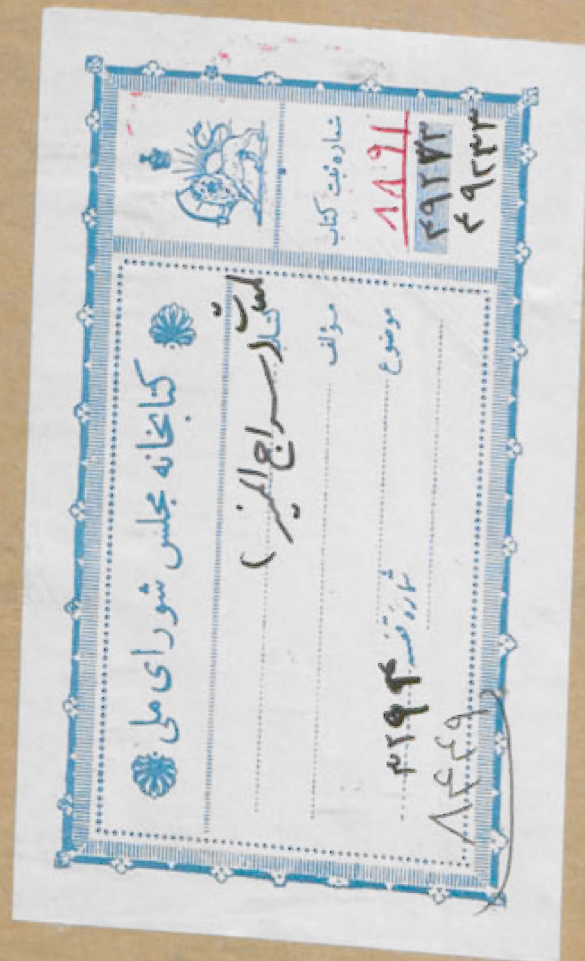 کتابخانه مجلس شورای ملی
کتاب سراج المنیر
مؤلف
موضوع
شماره قفسه ۳۲۹۴
شماره ثبت کتاب
۸۸۹۱
۴۹۲۴۳
۴۹۲۴۳